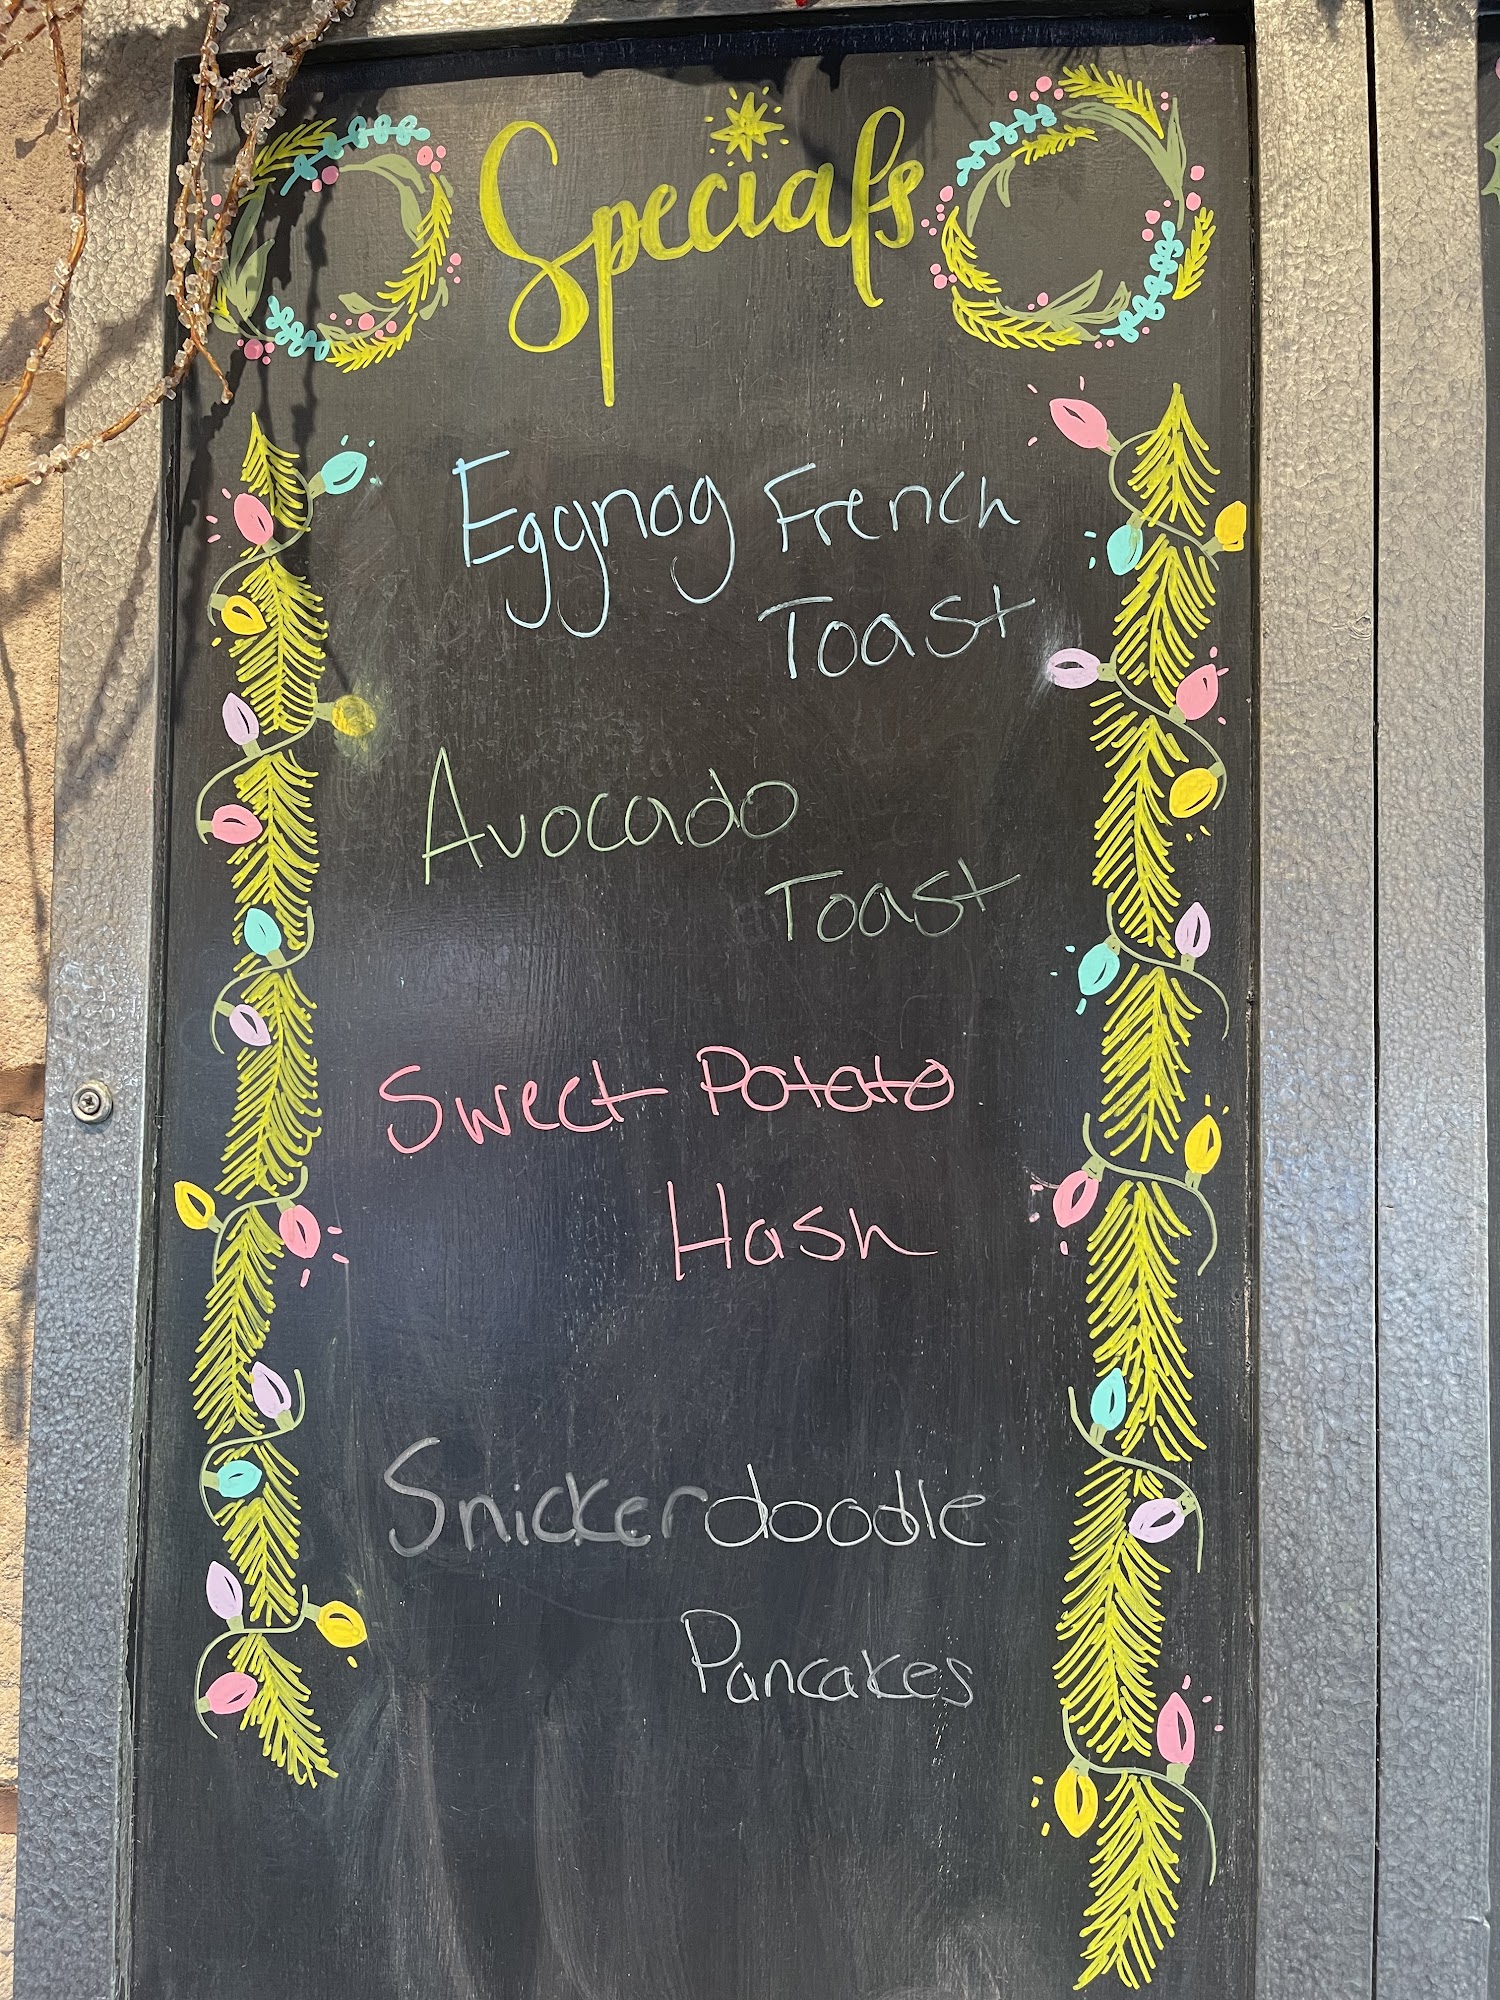 Specials
Eggnog French
Toast
Avocado
Toast
Sweet Potato
Hash
Snickerdoodle
Pancakes